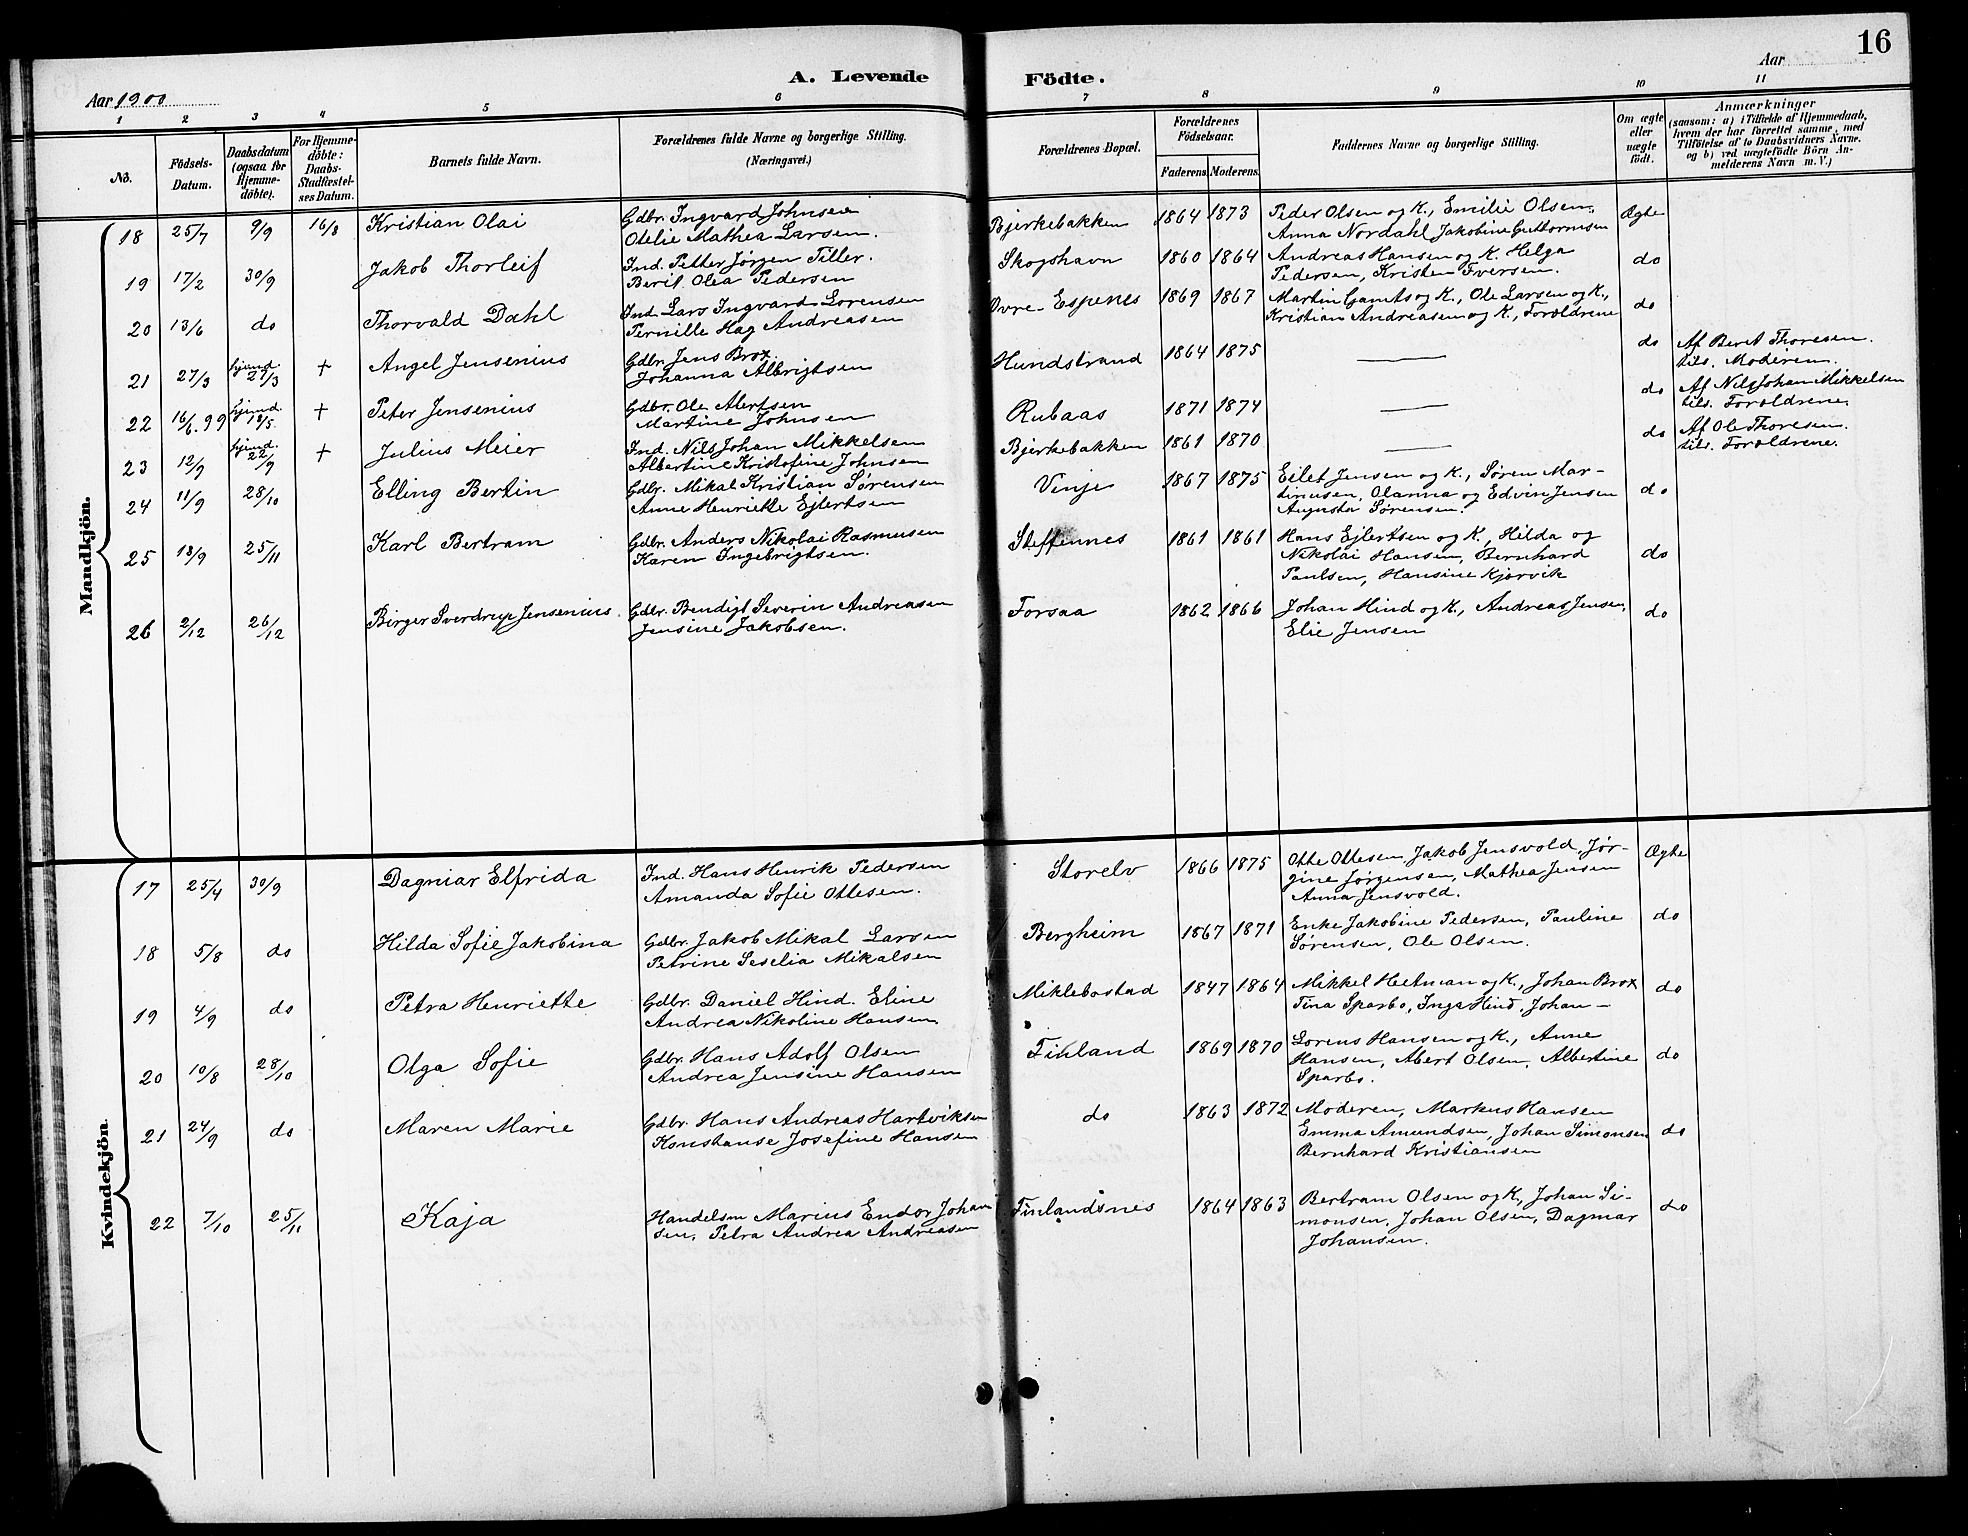 16
A. Levende Födte.
Aar 1900
Aar
1 2 3 4 5 6 7 8 9 10 11
No.
Födsels-Datum.
Daabsdatum (ogsaa for Hjemme-döbte).
For Hjemme-döbte: Daabs-Stadfæstel-ses Datum.
Barnets fulde Navn.
Forældrenes fulde Navne og borgerlige Stilling. (Næringsvei.)
Forældrenes Bopæl.
Forældrenes Födselsaar.
Faderens. Moderens.
Faddernes Navne og borgerlige Stilling.
Om ægte eller uægte födt.
Anmærkninger
(saasom: a) i Tilfælde af Hjemmedaab, hvem der har forrettet samme, med Tilföielse af to Daabsvidners Navne. og b) ved uægtefödte Börn An-melderens Navn m. V.)
Mandkjön.
18 25/7 9/9 16/8 Kristian Olai Gdbr. Ingvard Johnsen Bjerkebakken 1864 1873 Peder Olsen og K., Emilie Olsen, Ægte
Otelie Mathea Larsen. Anna Nordahl Jakobine Guttormsen
19 17/2 30/9 Jakob Thorleif Ind. Petter Jørgen Tiller. Skogshavn 1860 1864 Andreas Hansen og K. Helga do
Berit Olea Pedersen Pedersen, Kristen Iversen.
20 13/6 do Thorvald Dahl Ind. Lars Ingvard Lorensen Øvre-Espenes 1869 1867 Martin Gamts og K., Ole Larsen og K., do
Pernille Hag Andreasen Kristian Andreasen og K., Forældrene
21 27/3 hjemd. 27/3 + Angel Jensenius Gdbr. Jens Brox. Hundstrand 1864 1875 — do Af Beret Thoresen.
Johanna Albrigtsen tils. Moderen.
22 16/6.99 hjemd. 18/5 + Peter Jensenius Gdbr. Ole Alertsen Rubaas 1871 1874 — do Af Nils Johan Mikkelsen
Martine Johnsen tils. Forældrene.
23 12/9 hjemd. 22/9 + Julius Meier Ind. Nils Johan Mikkelsen Bjerkebakken 1861 1870 — do Af Ole Thoresen.
Albertine Kristofine Johnsen tils. Forældrene.
24 11/9 28/10 Elling Bertin Gdbr. Mikal Kristian Sørensen Vinje 1867 1875 Eilet Jensen og K., Søren Mar- do
Anne Henriette Ejlertsen tinusen, Olanna og Edvin Jensen
Augusta Sørensen.
25 18/9 25/11 Karl Bertram Gdbr. Anders Nikolai Rasmusen Steffennes 1861 1861 Hans Ejlertsen og K., Hilda og do
Karen Ingebrigtsen. Nikolai Hansen, Bernhard
Paulsen, Hansine Kjørvik
26 2/12 26/12 Birger Sverdrup Jensenius. Gdbr. Bendigt Severin Andreasen Forsaa 1862 1866 Johan Hind og K., Andreas Jensen, do
Jensine Jakobsen. Elie Jensen
Kvindekjön.
17 25/4 30/9 Dagmar Elfrida Ind. Hans Henrik Pedersen Storelv 1866 1875 Otte Ottesen, Jakob Jensvold, Jør- Ægte
Amanda Sofie Ottesen. gine Jørgensen, Mathea Jensen
Anna Jensvold.
18 5/8 do Hilda Sofie Jakobina Gdbr. Jakob Mikal Larsen Bergheim 1867 1871 Enke Jakobine Pedersen, Pauline do
Petrine Seselia Mikalsen Sørensen, Ole Olsen.
19 4/9 do Petra Henriette Gdbr. Daniel Hind. Eline Miklebostad 1847 1864 Mikkel Heitman og K., Johan Brox do
Andrea Nikoline Hansen Tina Sparbo, Inga Hind. Johan—
20 10/8 28/10 Olga Sofie Gdbr. Hans Adolf Olsen Finland 1869 1870 Lorens Hansen og K., Anne do
Andrea Jensine Hansen Hansen, Abert Olsen, Albertine
Sparbo.
21 24/9 do Maren Marie Gdbr. Hans Andreas Hartviksen do 1863 1872 Moderen, Markus Hansen do
Konstanse Josefine Hansen Emma Amundsen, Johan Simonsen
Bernhard Kristiansen
22 7/10 25/11 Kaja Handelsm Marius Endor Johan Finlandsnes 1864 1863 Bertram Olsen og K., Johan Si- do
sen. Petra Andrea Andreasen monsen, Johan Olsen, Dagmar
Johansen.